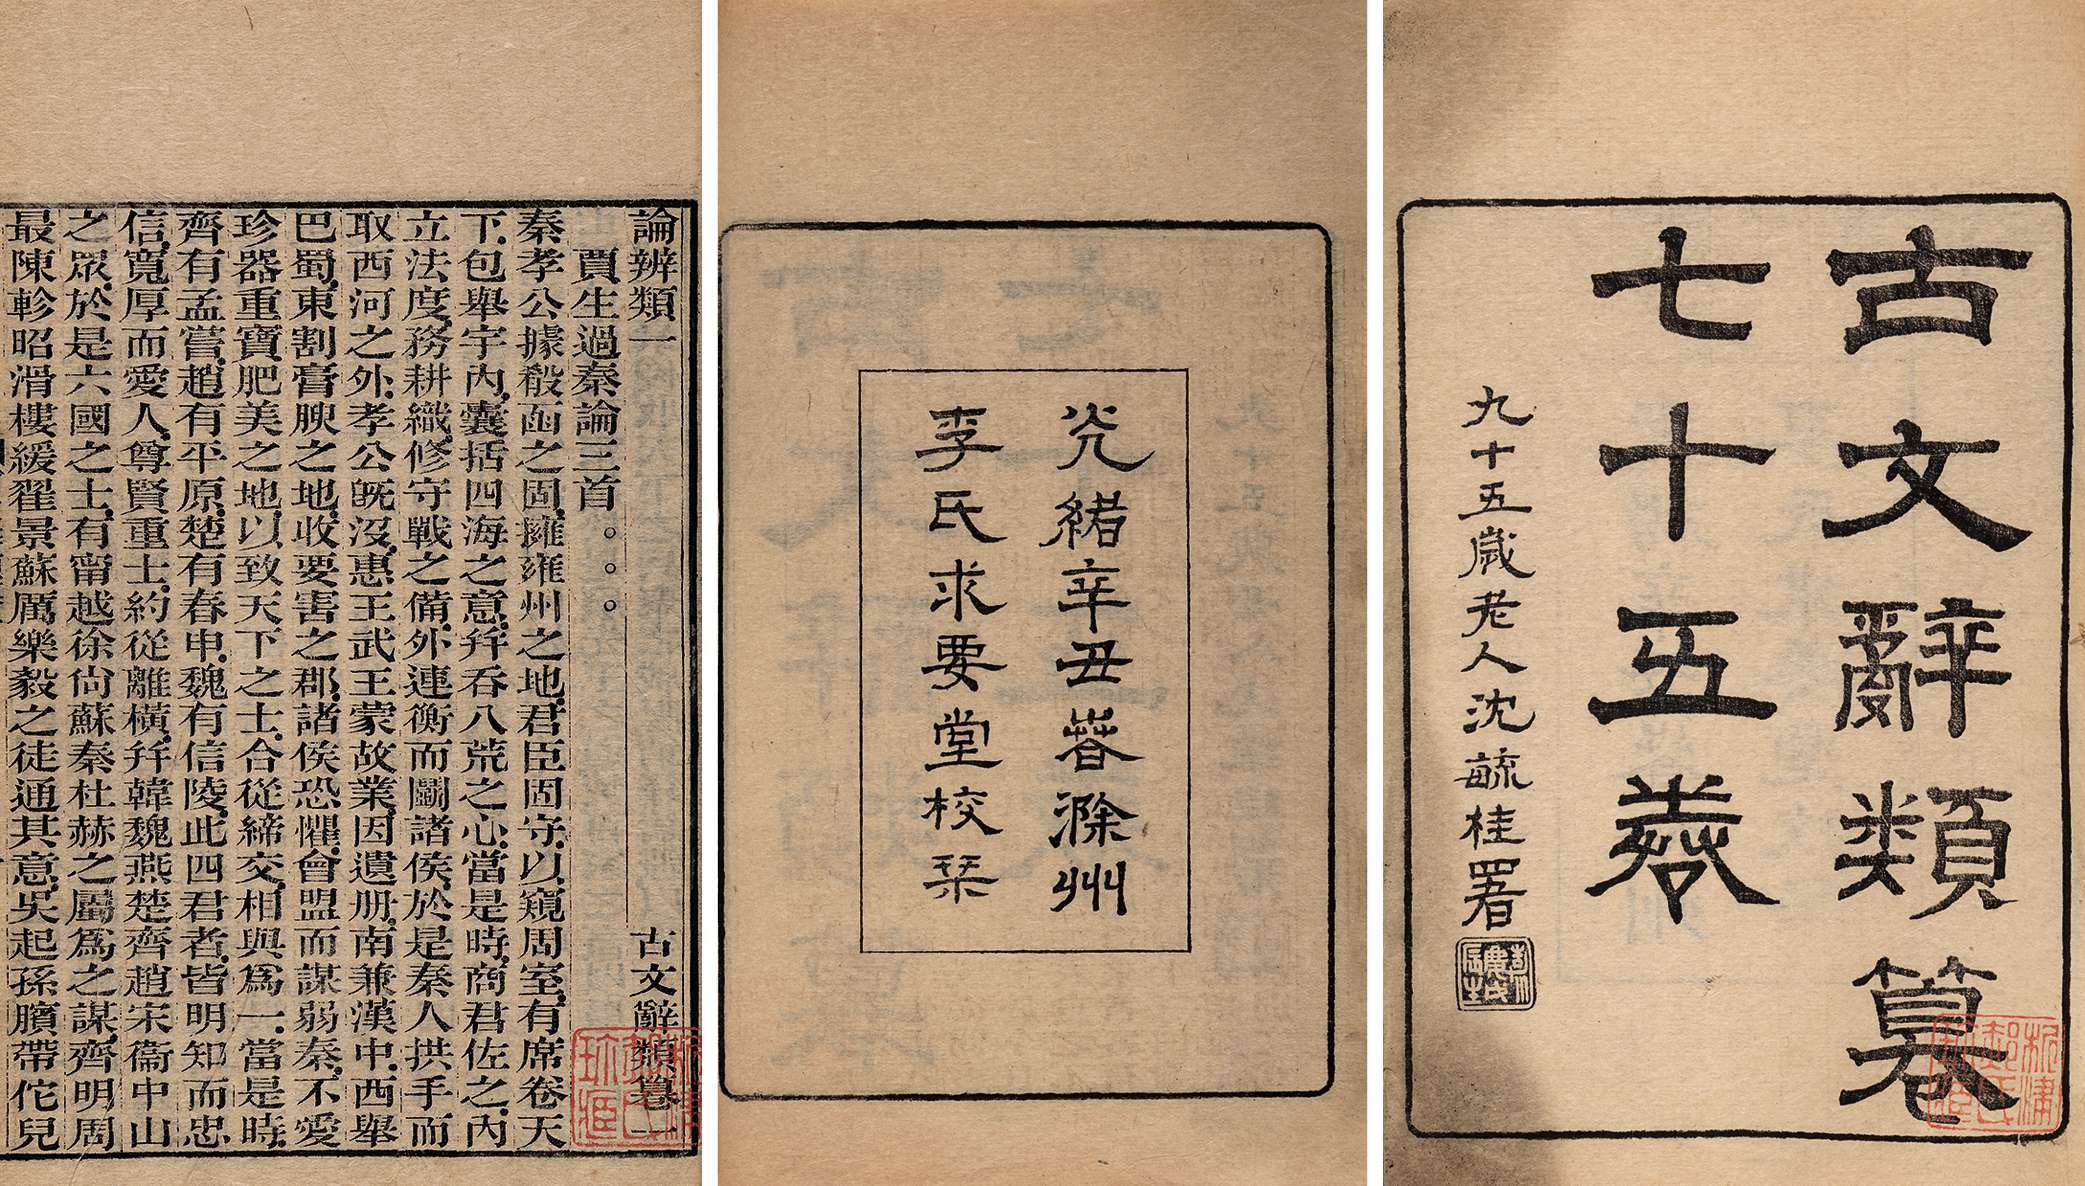 古文辭類篹
七十五卷
九十五歲老人沈毓桂署
光緒辛丑春滁州
李氏求要堂校栞
論辨類一 古文辭類篹一
賈生過秦論三首。。。
秦孝公據殽函之固.擁雍州之地.君臣固守.以窺周室.有席卷天
下.包舉宇內.囊括四海之意.幷吞八荒之心.當是時.商君佐之.內
立法度.務耕織.修守戰之備.外連衡而鬭諸侯.於是秦人拱手而
取西河之外.孝公旣沒.惠王武王蒙故業.因遺册.南兼漢中.西舉
巴蜀.東割膏腴之地.收要害之郡.諸侯恐懼.會盟而謀弱秦.不愛
珍器重寶肥美之地.以致天下之士.合從締交.相與爲一.當是時.
齊有孟嘗.趙有平原.楚有春申.魏有信陵.此四君者.皆明知而忠
信.寬厚而愛人.尊賢重士.約從離橫.幷韓魏燕楚齊趙宋衞中山
之眾.於是六國之士.有甯越徐尙蘇秦杜赫之屬爲之謀.齊明周
最陳軫昭滑樓緩翟景蘇厲樂毅之徒通其意.吳起孫臏帶佗兒